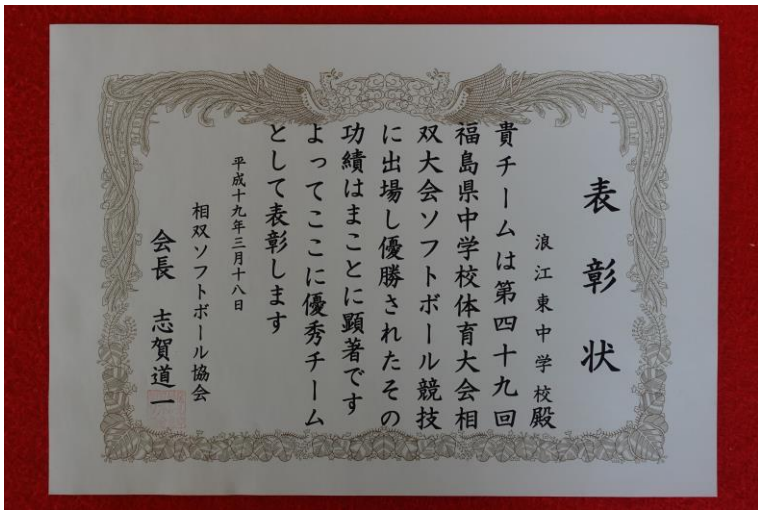 表彰状
浪江東中学校殿
貴チームは第四十九回
福島県中学校体育大会相
双大会ソフトボール競技
に出場し優勝されたその
功績はまことに顕著です
よってここに優秀チーム
として表彰します
平成十九年三月十八日
相双ソフトボール協会
会長 志賀道一